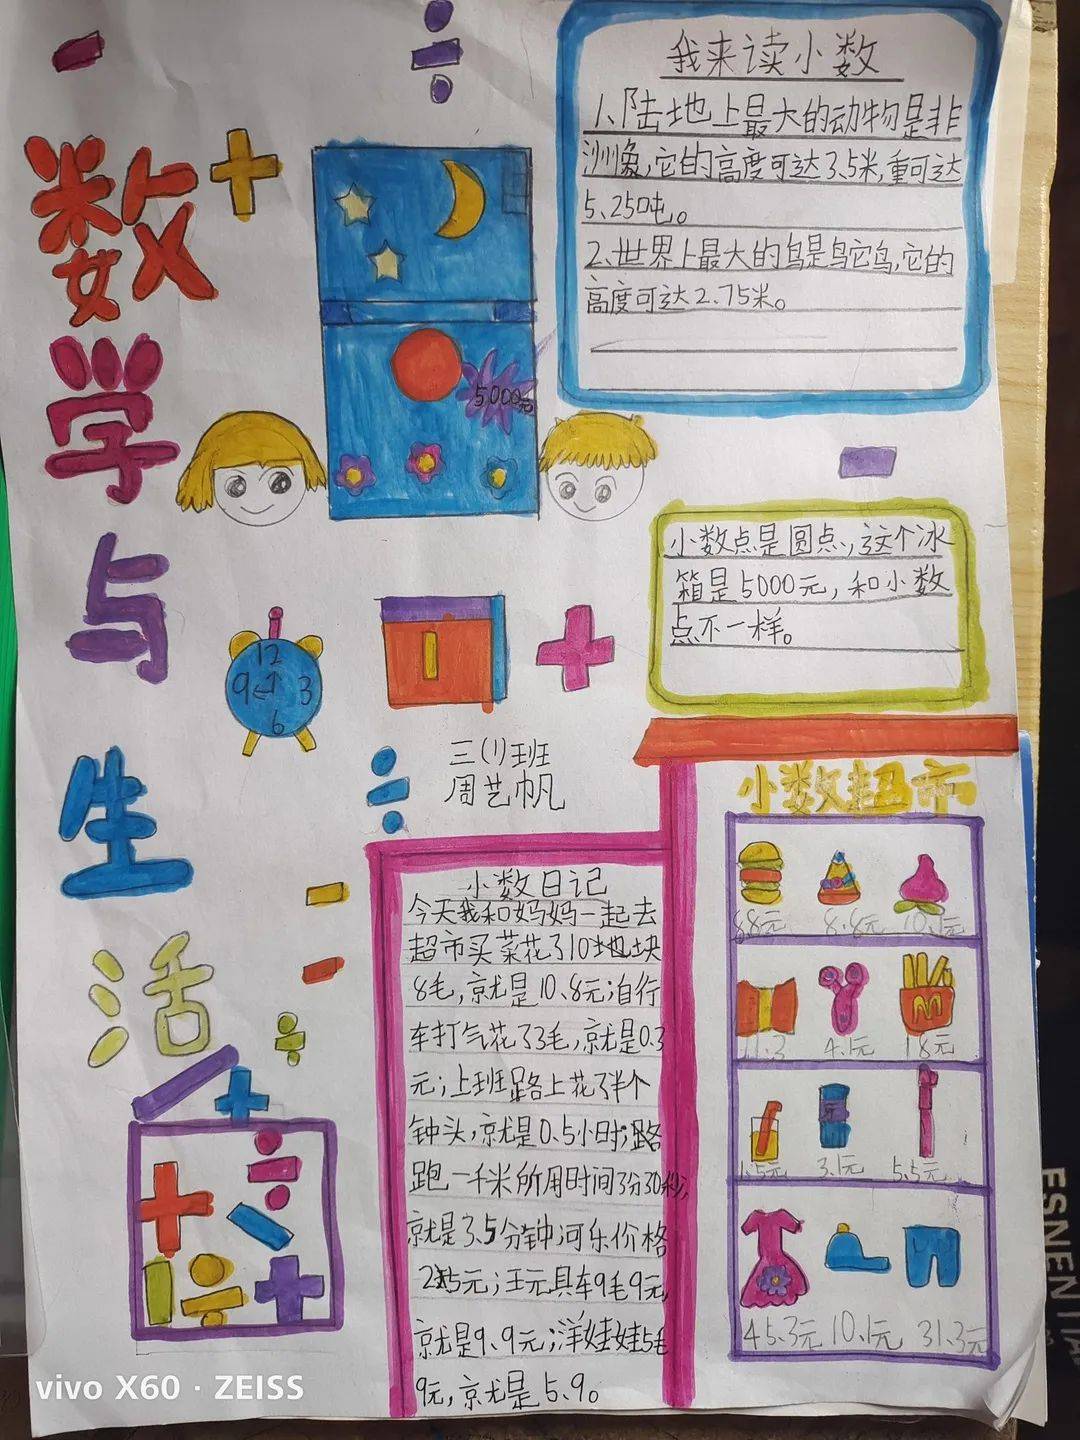 数学与生活
我来读小数
1、陆地上最大的动物是非
洲象,它的高度可达3.5米,重可达
5、250吨。
2、世界上最大的鸟是鸟它鸟,它的
高度可达2.75米。
5000元
小数点是圆点、,这个冰
箱是5000元,和小数
点不一样。
12
9
3
6
三(1)班
周艺帆
小数日记
今天我和妈妈一起去
超市买菜花了10地块
8毛,就是10、8元;自行
车打气花了3毛,就是0.3
元;上班路上花了半个
钟头,就是0.5小时;路
跑一千米所用时间3分30秒,
就是3.5分钟;可乐价格
元;玉元具车9毛9元,
就是9、9元;洋娃娃5毛
9元,就是5.9。
小数超市
8.8元
10.1元
11.3
4.1元
18元
M
1.5元
3.1元
5.5元
45.3元
10.1元
31.3元
vivo X60 · ZEISS